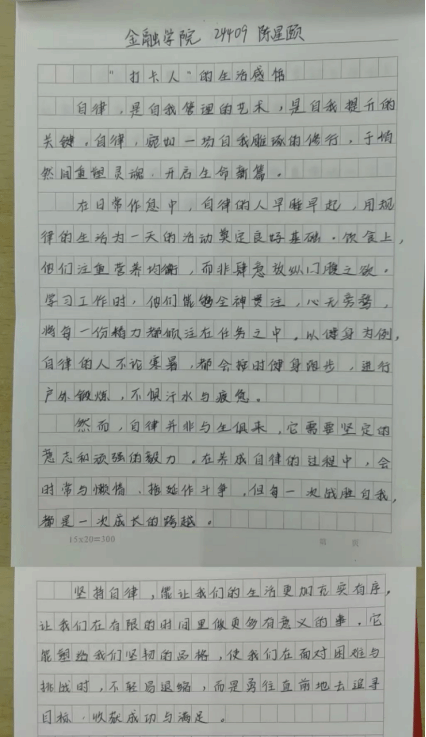 金融学院 24409 陈星颐
“打卡人”的生活感悟
自律，是自我管理的艺术，是自我提升的
关键。自律，宛如一场自我雕琢的修行，于悄
然间重塑灵魂，开启生命新篇。
在日常作息中，自律的人早睡早起，用规
律的生活为一天的活动奠定良好基础。饮食上，
他们注重营养均衡，而非肆意放纵口腹之欲。
学习工作时，他们能够全神贯注，心无旁骛，
将每一份精力都倾注在任务之中。以健身为例，
自律的人不论寒暑，都会按时健身跑步，进行
户外锻炼，不惧汗水与疲惫。
然而，自律并非与生俱来，它需要坚定的
意志和顽强的毅力。在养成自律的过程中，会
时常与懒惰、拖延作斗争，但每一次战胜自我，
都是一次成长的跨越。
15x20=300
坚持自律，能让我们的生活更加充实有序，
让我们在有限的时间里做更多有意义的事。它
能塑造我们坚韧的品格，使我们在面对困难与
挑战时，不轻易退缩，而是勇往直前地去追寻
目标，收获成功与满足。